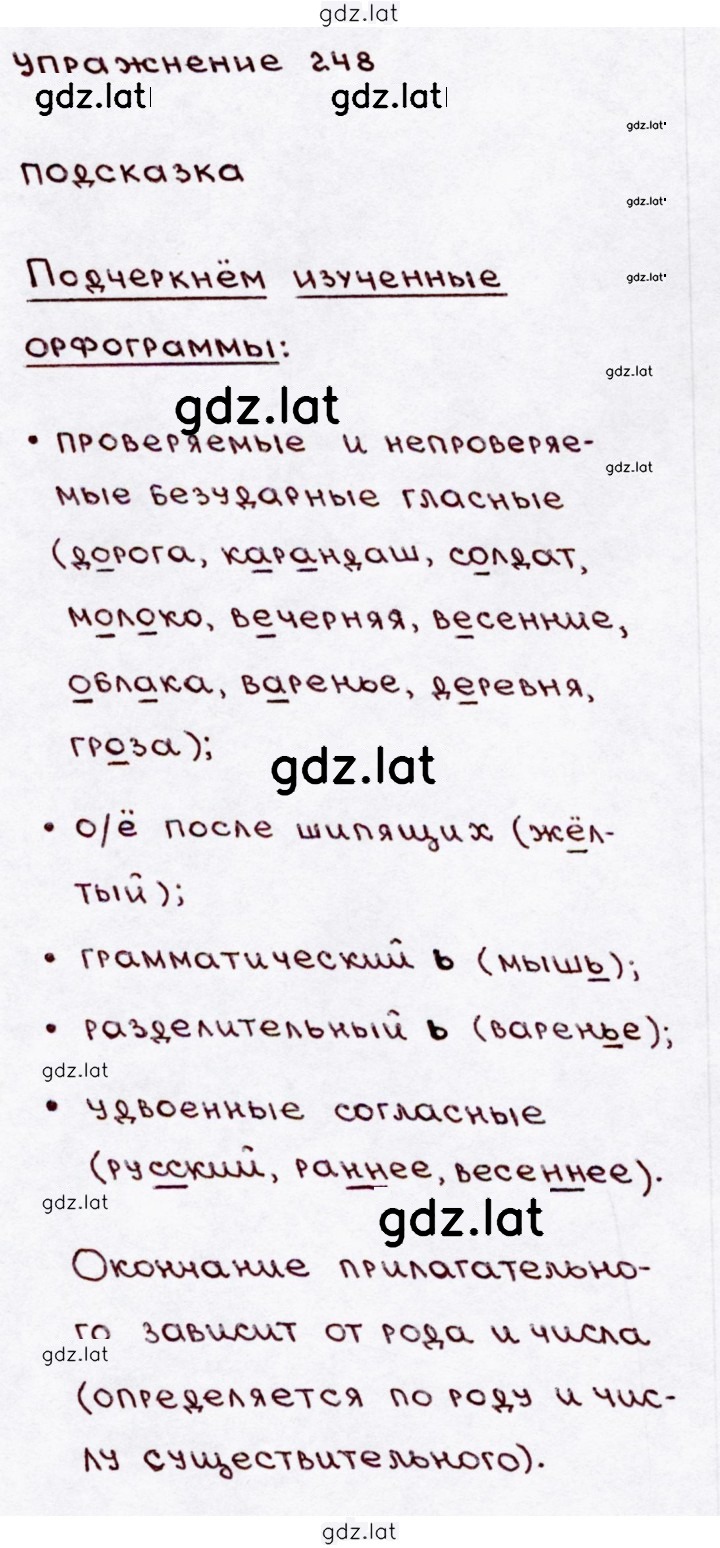 gdz.lat
упражнение 248
gdz.lat gdz.lat
gdz.lat
подсказка
gdz.lat
Подчеркнём изученные
gdz.lat
орфограммы:
gdz.lat
gdz.lat
• проверяемые и непроверяе-
gdz.lat
мые безударные гласные
(дорога, карандаш, солдат,
молоко, вечерняя, весенние,
облака, варенье, деревня,
гроза);
gdz.lat
• о/ё после шипящих (жёл-
тый);
• грамматический ь (мышь);
• разделительный ь (варенье);
gdz.lat
• удвоенные согласные
(русский, раннее, весеннее).
gdz.lat
gdz.lat
Окончание прилагательно-
го зависит от рода и числа
gdz.lat
(определяется по роду и чис-
лу существительного).
gdz.lat